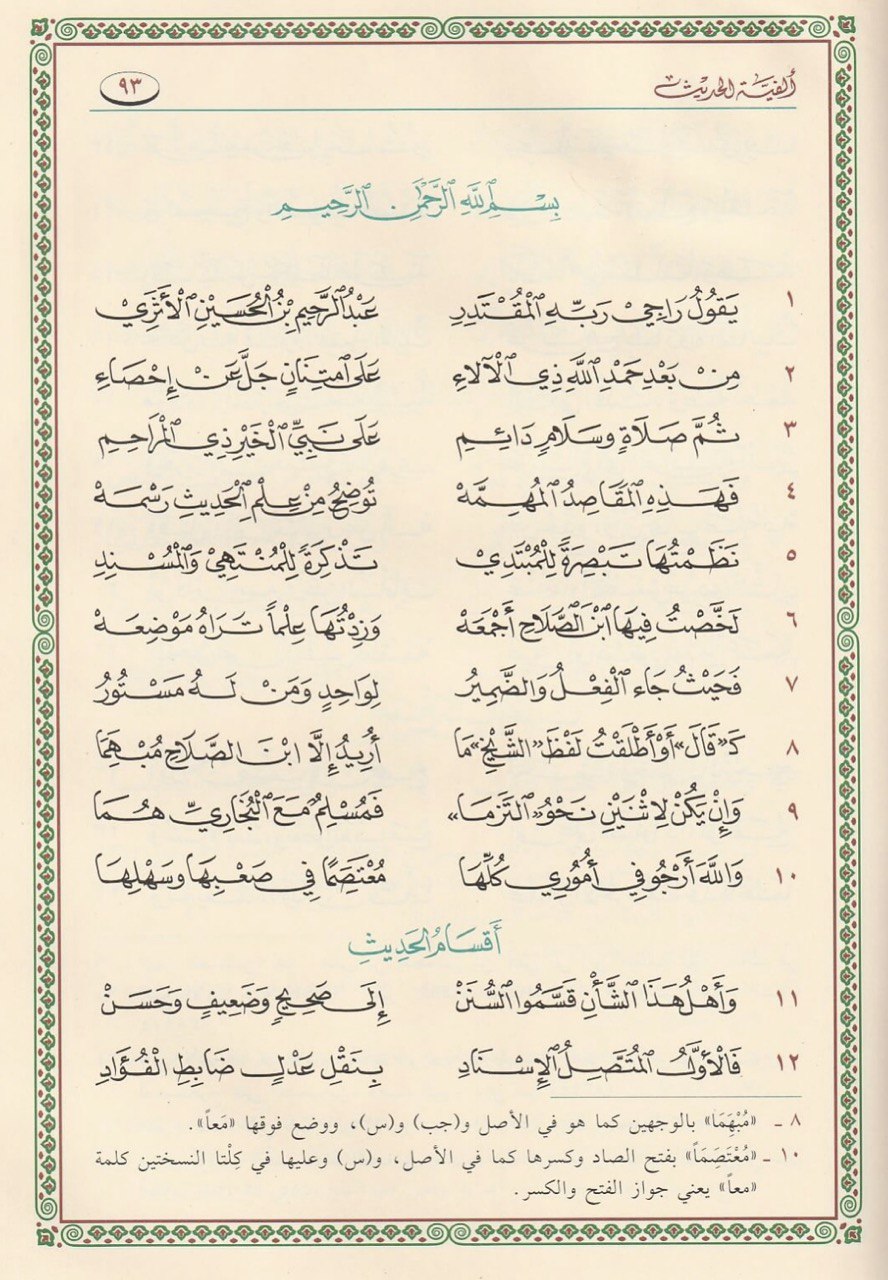 ألفية الحديث ٩٣
بِسْمِ ٱللَّهِ ٱلرَّحْمَٰنِ ٱلرَّحِيمِ
١ يَقُولُ رَاجِيْ رَبِّهِ ٱلْمُقْتَدِرِ عَبْدُ ٱلرَّحِيمِ بْنُ ٱلْحُسَيْنِ ٱلْأَثَرِيْ
٢ مِنْ بَعْدِ حَمْدِ ٱللَّهِ ذِي ٱلْآلَاءِ عَلَى ٱمْتِنَانٍ جَلَّ عَنْ إِحْصَاءِ
٣ ثُمَّ صَلَاةٍ وَسَلَامٍ دَائِمِ عَلَى نَبِيِّ ٱلْخَيْرِ ذِي ٱلْمَرَاحِمِ
٤ فَهَذِهِ ٱلْمَقَاصِدُ ٱلْمُهِمَّهْ تُوضِحُ مِنْ عِلْمِ ٱلْحَدِيثِ رَسْمَهْ
٥ نَظَمْتُهَا تَبْصِرَةً لِلْمُبْتَدِيْ تَذْكِرَةً لِلْمُنْتَهِيْ وَٱلْمُسْنِدِ
٦ لَخَّصْتُ فِيهَا ٱبْنَ ٱلصَّلَاحِ أَجْمَعَهْ وَزِدْتُهَا عِلْماً تَرَاهُ مَوْضِعَهْ
٧ فَحَيْثُ جَاءَ ٱلْفِعْلُ وَالضَّمِيرُ لِوَاحِدٍ وَمَنْ لَهُ مَسْتُورُ
٨ كَـ«قَالَ» أَوْ أَطْلَقْتُ لَفْظَ «الشَّيْخِ» مَا أُرِيدُ إِلَّا ابْنَ الصَّلَاحِ مُبْهَِمَا
٩ وَإِنْ يَكُنْ لِاثْنَيْنِ نَحْوُ «ٱلْتَزَمَا» فَمُسْلِمٌ مَعَ ٱلْبُخَارِيِّ هُمَا
١٠ وَاللَّهَ أَرْجُو فِي أُمُورِي كُلِّهَا مُعْتَصَِمًا فِي صَعْبِهَا وَسَهْلِهَا
أَقسَامُ الحَدِيثِ
١١ وَأَهْلُ هَذَا ٱلشَّأْنِ قَسَّمُوا ٱلسُّنَنْ إِلَى صَحِيحٍ وَضَعِيفٍ وَحَسَنْ
١٢ فَالْأَوَّلُ ٱلْمُتَّصِلُ ٱلْإِسْنَادِ بِنَقْلِ عَدْلٍ ضَابِطِ الْفُؤَادِ
٨ ـ «مُبْهَِمَا» بالوجهين كما هو في الأصل و(جب) و(س)، ووضع فوقها «مَعاً».
١٠ ـ «مُعْتَصَِمَاً» بفتح الصاد وكسرها كما في الأصل، و(س) وعليها في كِلْتا النسختين كلمة
«معاً» يعني جواز الفتح والكسر.